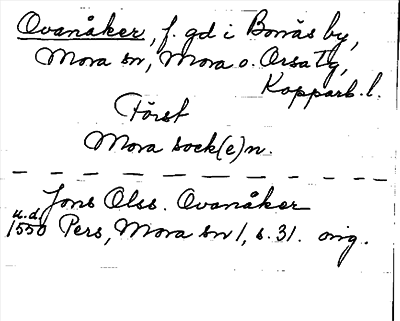 Ovanåker, f. gd i Bonäs by,
Mora sn, Mora o. Orsa tg,
Kopparb. l.
Först
Mora sock(e)n.
Jons Olss. Ovanåker
u.d.
1550 Pers, Mora sn 1, s. 31. orig.